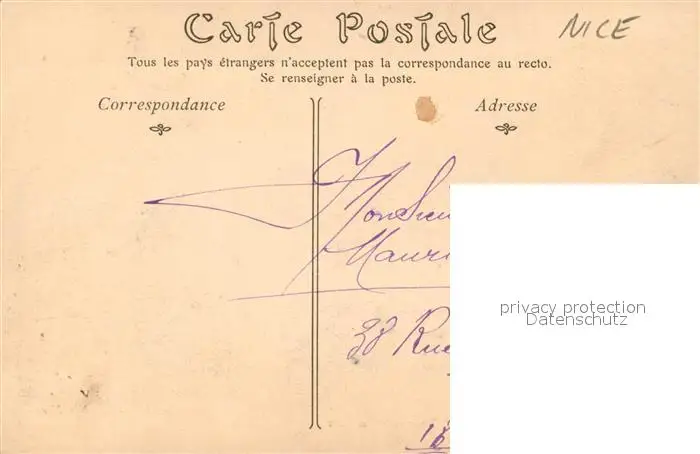 Carte Postale
NICE
Tous les pays étrangers n'acceptent pas la correspondance au recto.
Se renseigner à la poste.
Correspondance
Adresse
Monsieu
Mauri
38 Rue
privacy protection
Datenschutz